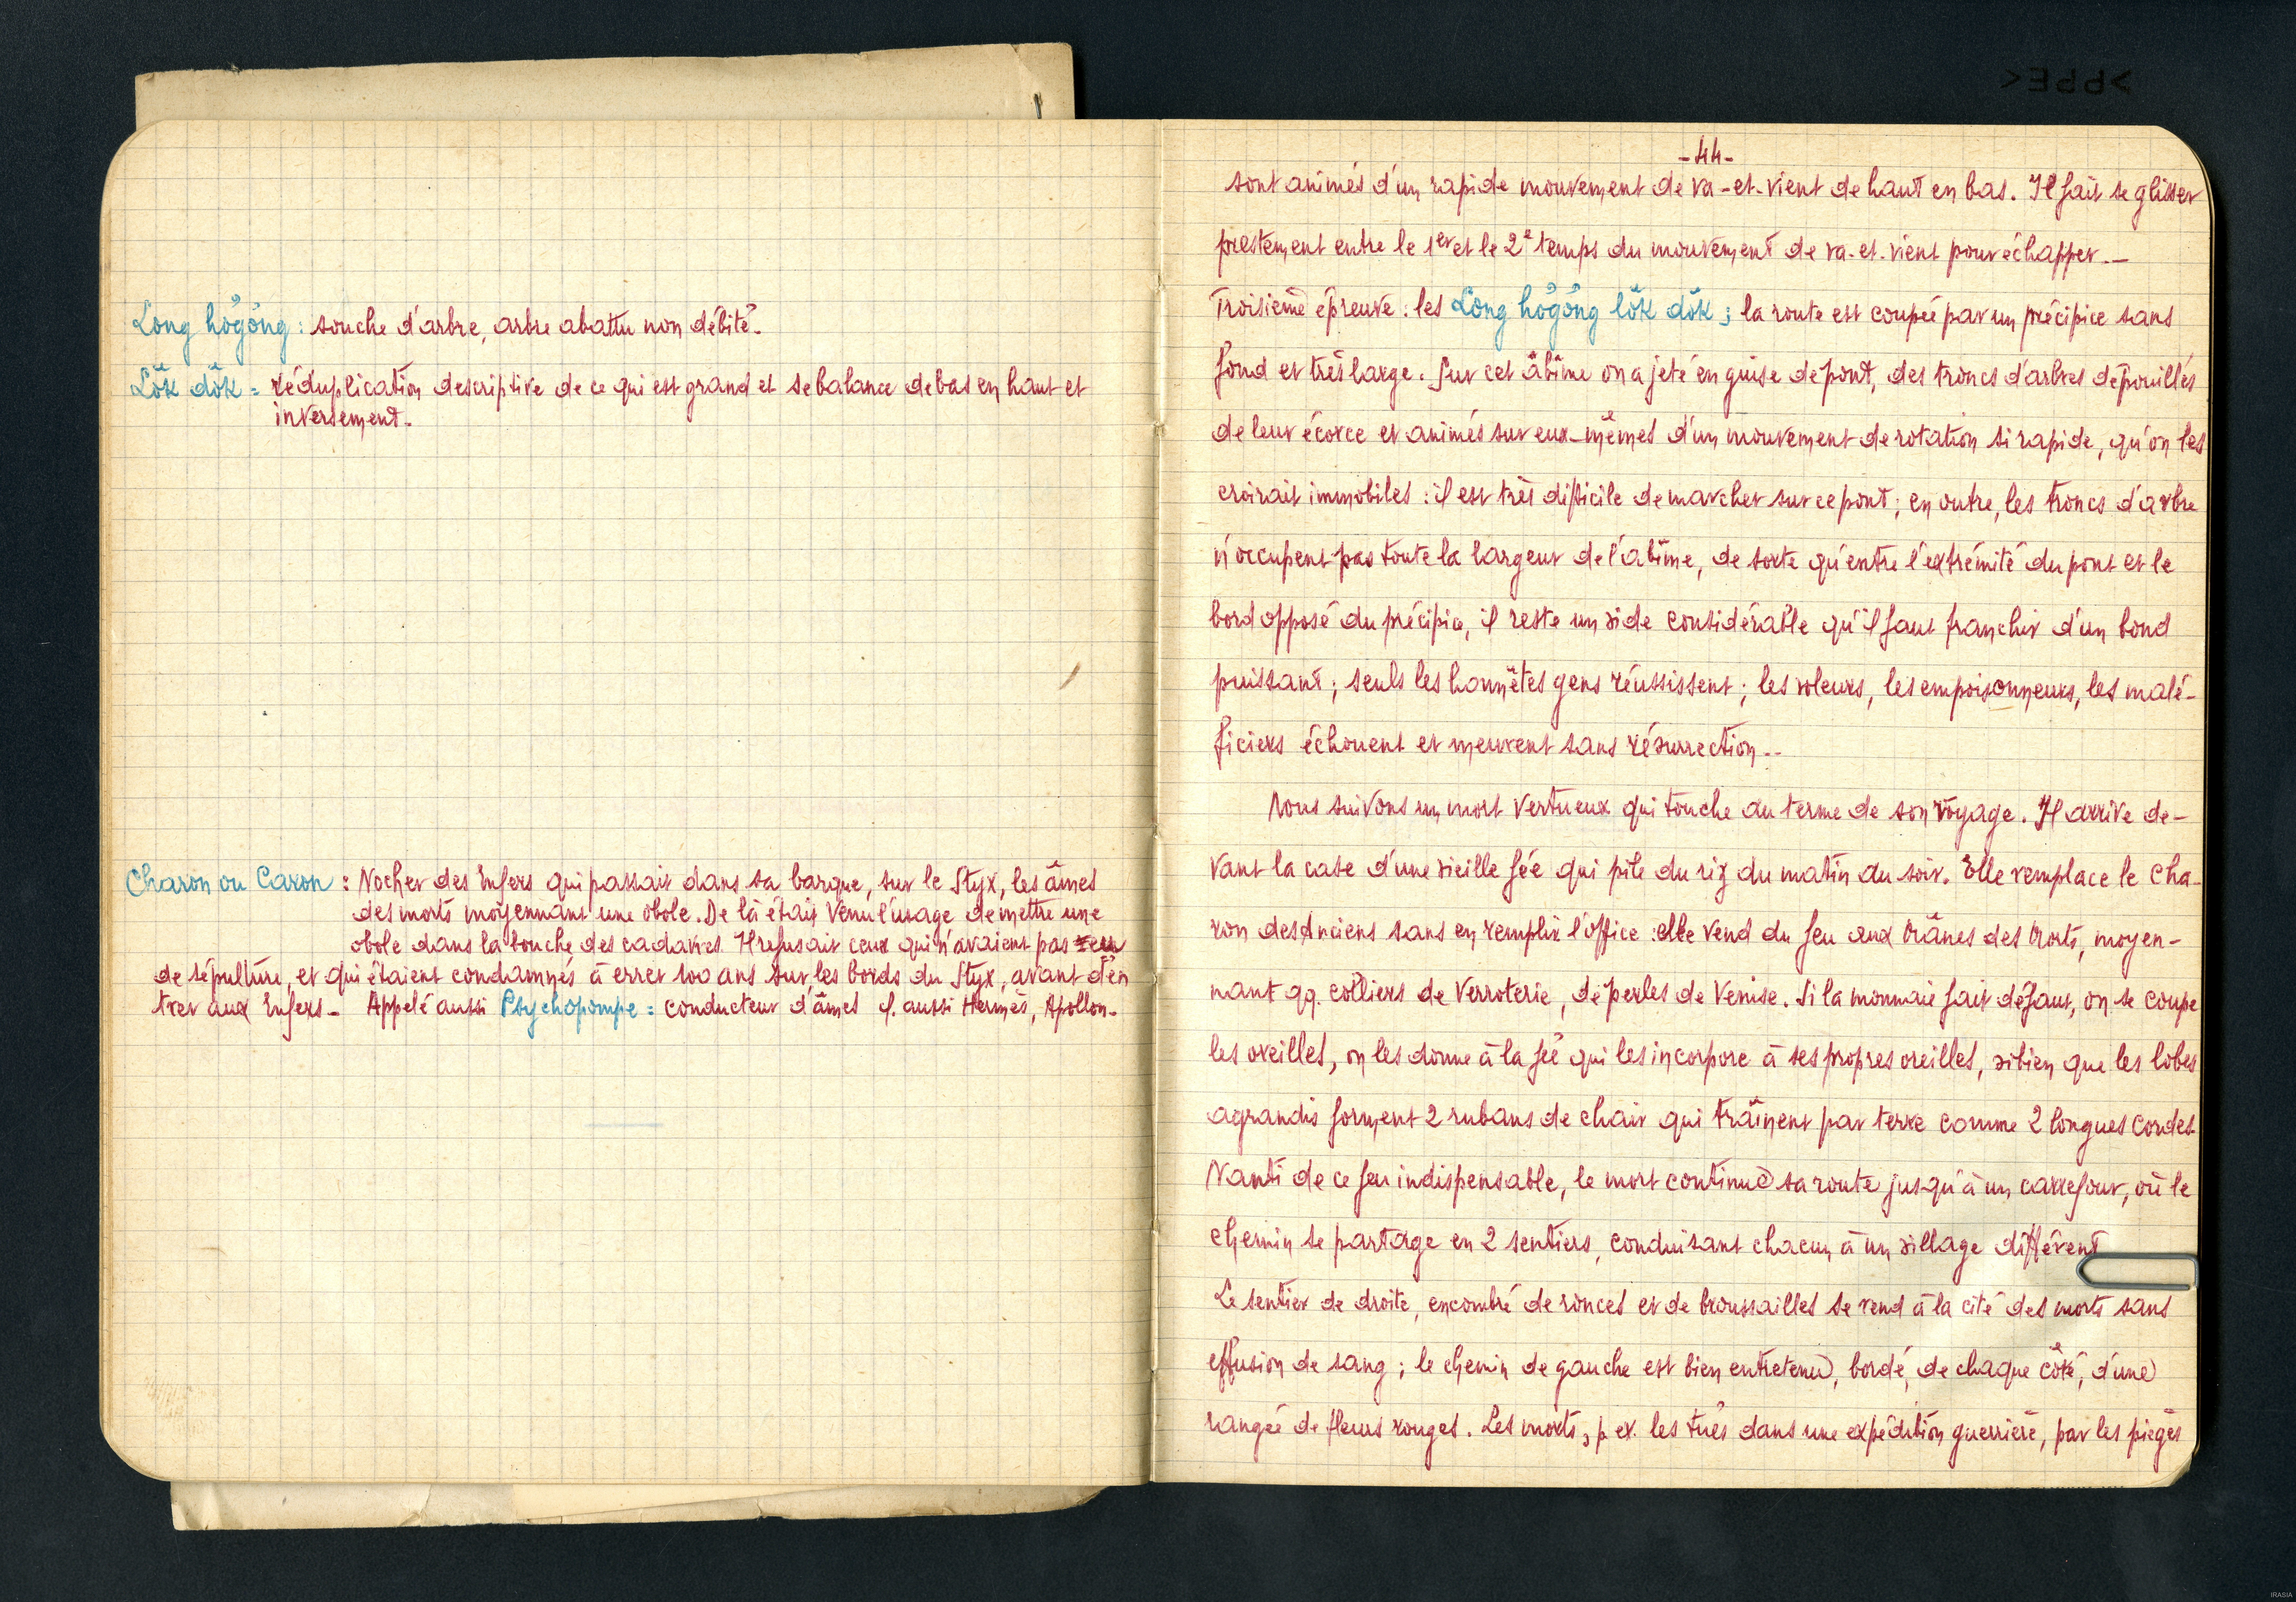 Long hơgơng : souche d'arbre, arbre abattu non débité.
Lŏk dŏk = réduplication descriptive de ce qui est grand et se balance de bas en haut et
inversement.
Charon ou Caron : Nocher des Enfers qui passait dans sa barque, sur le Styx, les âmes
des morts moyennant une obole. De là était venu l'usage de mettre une
obole dans la bouche des cadavres. Il refusait ceux qui n'avaient pas eu
de sépulture, et qui étaient condamnés à errer 100 ans sur les bords du Styx, avant d'en
trer aux Enfers - Appelé aussi Psychopompe = conducteur d'âmes cf. aussi Hermès, Apollon.
- 44 -
sont animés d'un rapide mouvement de va-et-vient de haut en bas. Il faut se glisser
prestement entre le 1er et le 2e temps du mouvement de va-et-vient pour échapper. -
Troisième épreuve : les Long hơgơng lŏk dŏk ; la route est coupée par un précipice sans
fond et très large. Sur cet abîme on a jeté en guise de pont, des troncs d'arbres dépouillés
de leur écorce et animés sur eux-mêmes d'un mouvement de rotation si rapide, qu'on les
croirait immobiles : il est très difficile de marcher sur ce pont ; en outre, les troncs d'arbre
n'occupent pas toute la largeur de l'abîme, de sorte qu'entre l'extrémité du pont et le
bord opposé du précipice, il reste un vide considérable qu'il faut franchir d'un bond
puissant ; seuls les honnêtes gens réussissent ; les voleurs, les empoisonneurs, les malé-
ficiers échouent et meurent sans résurrection. -
Nous suivons un mort vertueux qui touche au terme de son voyage. Il arrive de-
vant la case d'une vieille fée qui pile du riz du matin au soir. Elle remplace le Cha-
ron des Anciens sans en remplir l'office : elle vend du feu aux Mânes des Morts, moyen-
nant qq. colliers de verroterie, de perles de Venise. Si la monnaie fait défaut, on se coupe
les oreilles, on les donne à la fée qui les incorpore à ses propres oreilles, si bien que les lobes
agrandis forment 2 rubans de chair qui traînent par terre comme 2 longues cordes.
Nanti de ce feu indispensable, le mort continue sa route jusqu'à un carrefour, où le
chemin se partage en 2 sentiers, conduisant chacun à un village différent
Le sentier de droite, encombré de ronces et de broussailles se rend à la cité des morts sans
effusion de sang ; le chemin de gauche est bien entretenu, bordé, de chaque côté, d'une
rangée de fleurs rouges. Les morts, p. ex. les tués dans une expédition guerrière, par les pièges
IRASIA